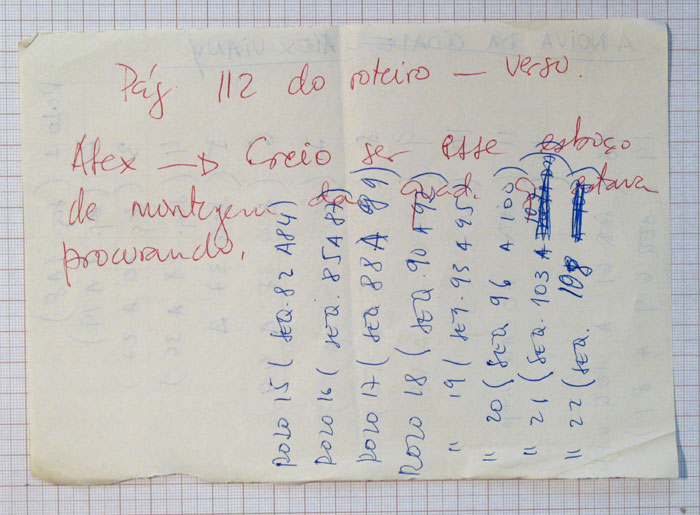 A NOIVA DA CIDADE - ALEX VIANY
Pág 112 do roteiro — verso.
Alex → Creio ser esse esboço
de montagem da q estava
procurando.
ROLO 15 (SEQ. 82 A 84)
ROLO 16 (SEQ. 85 A 87)
ROLO 17 (SEQ 88 A 89)
ROLO 18 (SEQ. 90 A 92)
" 19 (SEQ. 93 A 95)
" 20 (SEQ 96 A 100)
" 21 (SEQ. 103 A
" 22 (SEQ. 108